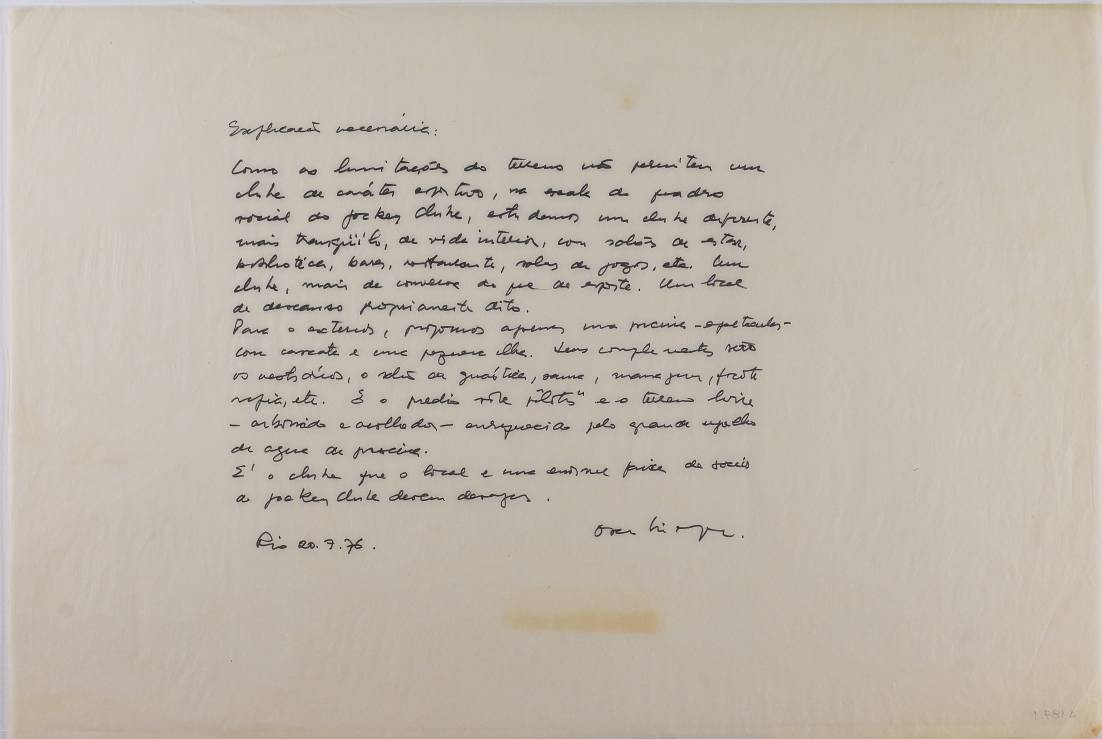 Explicação necessária:
Como as limitações do terreno não permitem um
clube de caráter esportivo, na escala do quadro
social do Jockey Clube, estudamos um clube diferente,
mais tranqüilo, de vida interior, com salões de estar,
biblioteca, bares, restaurante, salas de jogos, etc. Um
clube, mais de conversa do que de esporte. Um local
de descanso propriamente dito.
Para o exterior, propomos apenas uma piscina -espetacular-
com cascata e uma pequena ilha. Seus complementos serão
os vestiários, o salão de ginástica, sauna, massagem,
etc. E o prédio sobre "pilotis" e o terreno livre
- arborizado e acolhedor - enriquecido pelo grande espelho
de agua da piscina.
E' o clube que o local e uma enorme faixa de socios
do Jockey Clube devem desejar.
Rio 20.7.76.
Oscar Niemeyer.